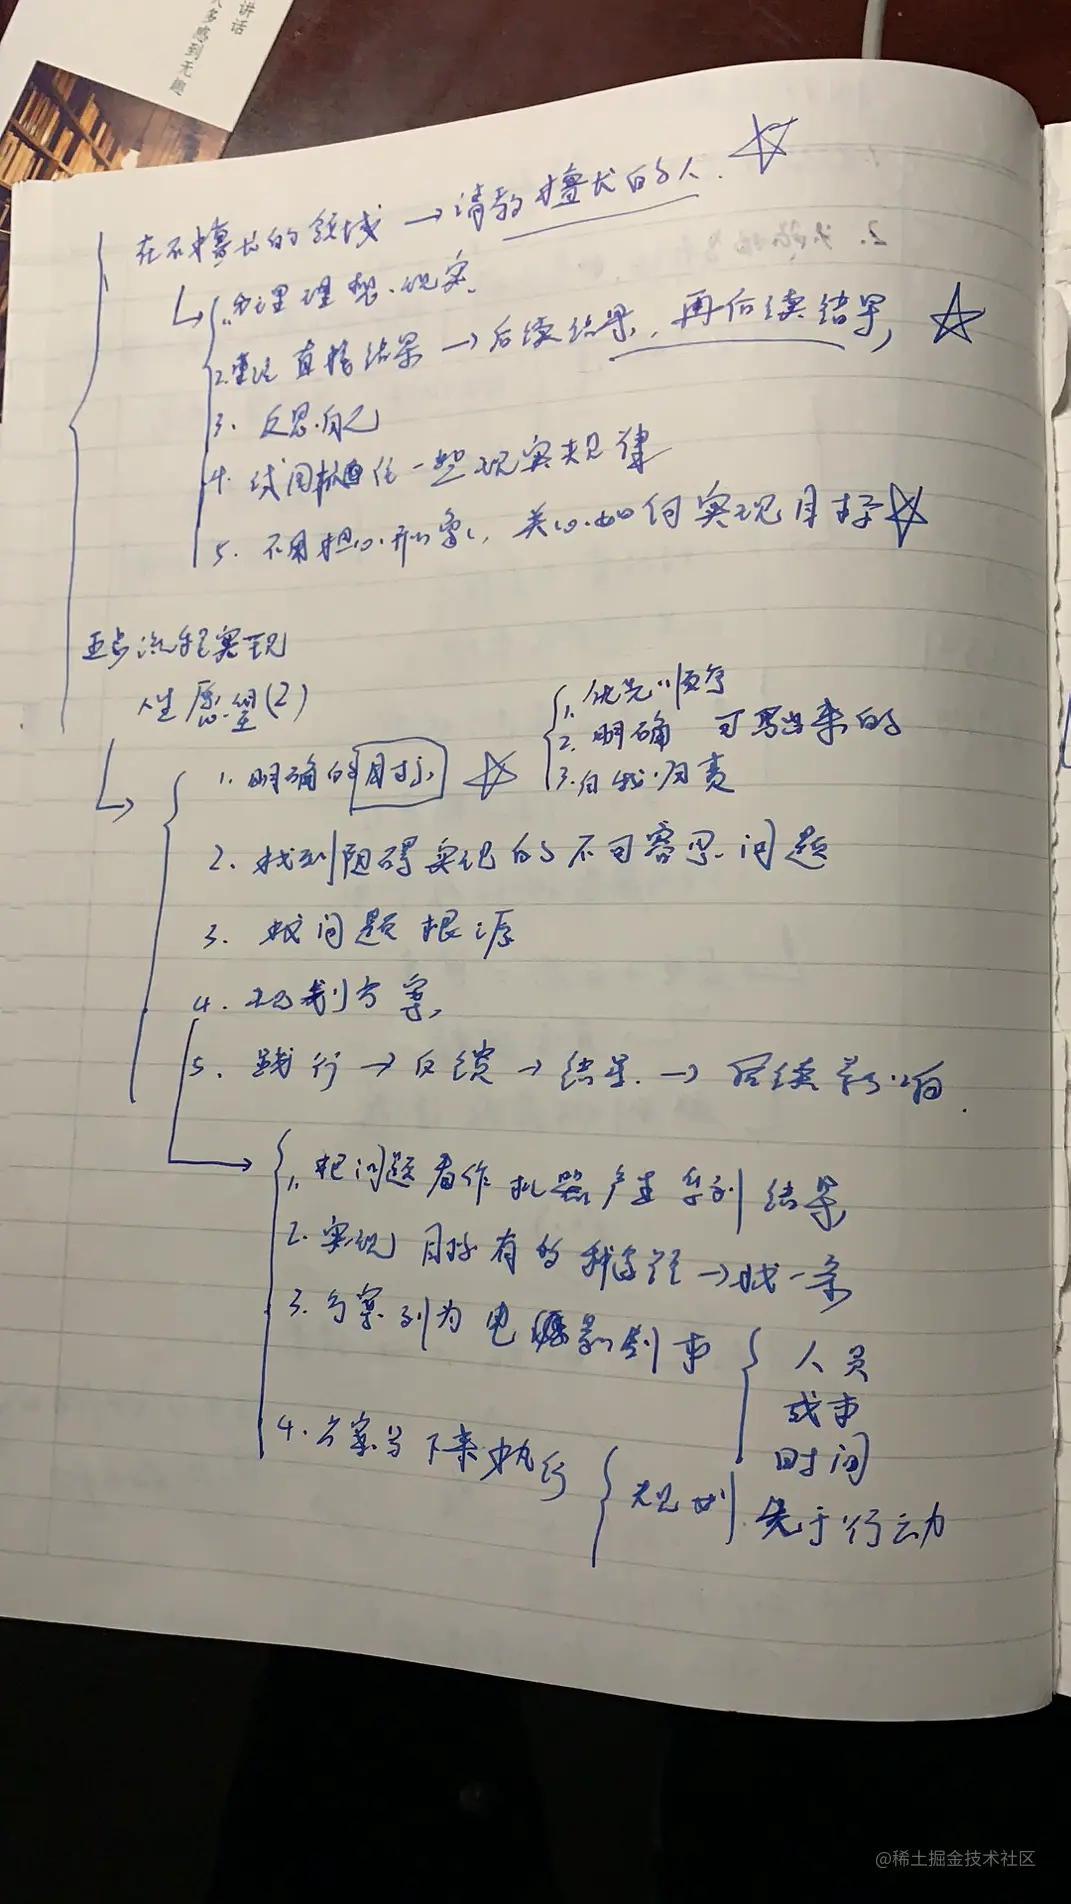 讲话
多感到无趣
在不擅长的领域→请教擅长的人.
1.合理理想.现实.
2. 直接结果→后续结果,再后续结果,
3. 反思自己
4. 一些现实规律
5. 不用担心形象,关心如何实现目标
五步流程实现
人生愿望(2)
1. 明确的目标
1. 优先顺序
2. 明确 可写出来的
3. 自我归责
2. 找到阻碍实现的不可容忍问题
3. 找问题根源
4. 规划方案,
5. 践行→反馈→结果.→后续影响.
1. 把问题看作机器产生系列结果
2. 实现目标有的 →找一条
3. 方案列为电影剧本
人员
成本
时间
4. 方案写下来执行
规划 先于行动
@稀土掘金技术社区